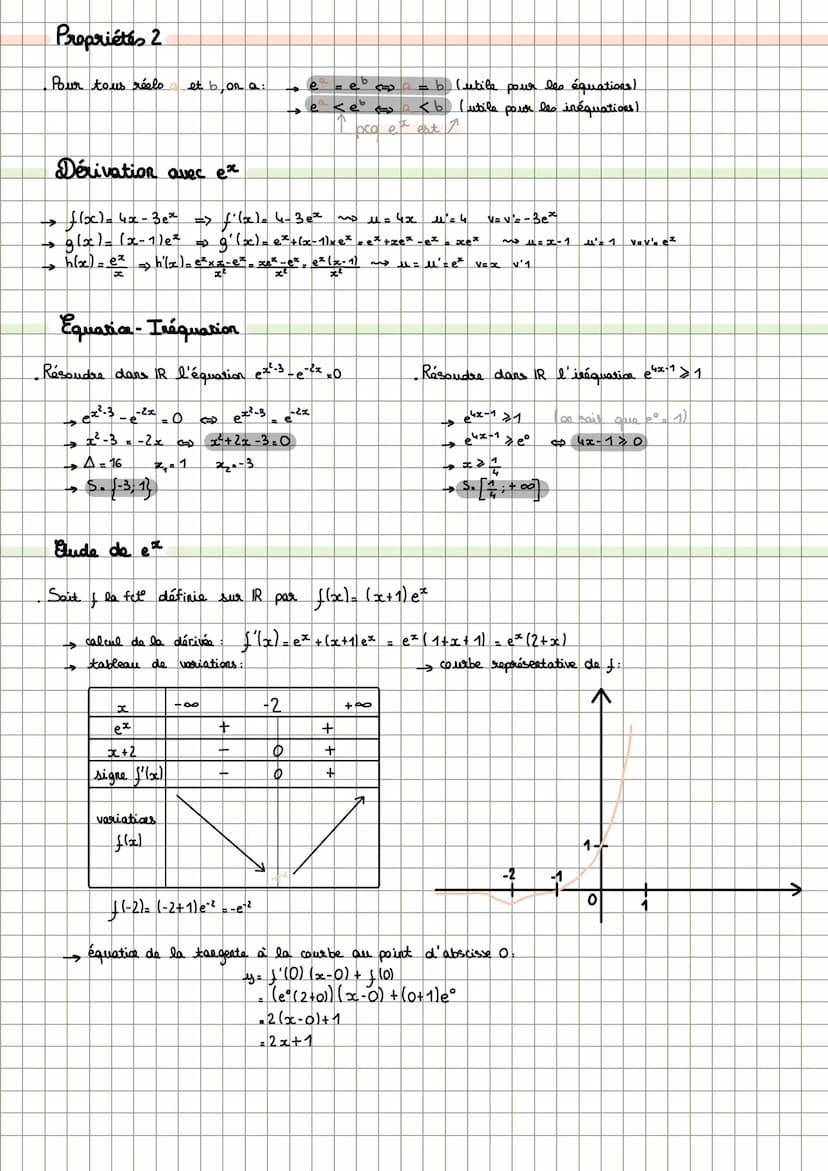 Propriétés 2
. Pour tous réels a et b, on a : → eᵃ = eᵇ ⇔ a = b (utile pour les équations)
→ eᵃ < eᵇ ⇔ a < b (utile pour les inéquations)
↑ pcq eˣ est ↗
Dérivation avec eˣ
→ f(x) = 4x - 3eˣ => f'(x) = 4 - 3eˣ ⇝ u = 4x u' = 4 v = v' = -3eˣ
→ g(x) = (x-1)eˣ => g'(x) = eˣ + (x-1)×eˣ = eˣ + xeˣ - eˣ = xeˣ ⇝ u = x-1 u' = 1 v = v' = eˣ
→ h(x) = eˣ/x => h'(x) = (eˣ×x - eˣ)/x² = (xeˣ - eˣ)/x² = eˣ(x-1)/x² ⇝ u = u' = eˣ v = x v' 1
Equation - Inéquation
. Résoudre dans IR l'équation e^(x²-3) - e^(-2x) = 0
→ e^(x²-3) - e^(-2x) = 0 ⇔ e^(x²-3) = e^(-2x)
→ x² - 3 = -2x ⇔ x² + 2x - 3 = 0
→ Δ = 16 x₁ = 1 x₂ = -3
→ S = {-3; 1}
. Résoudre dans IR l'inéquation e^(4x-1) ⩾ 1
→ e^(4x-1) ⩾ 1 (on sait que e⁰ = 1)
→ e^(4x-1) ⩾ e⁰ ⇔ 4x - 1 ⩾ 0
→ x ⩾ 1/4
→ S = [1/4 ; +∞]
Etude de eˣ
. Soit f la fct° définie sur IR par f(x) = (x+1)eˣ
→ calcul de la dérivée : f'(x) = eˣ + (x+1)eˣ = eˣ(1+x+1) = eˣ(2+x)
→ tableau de variations :
x -∞ -2 +∞
eˣ + +
x+2 - 0 +
signe f'(x) - 0 +
variations
f(x)
-e⁻²
f(-2) = (-2+1)e⁻² = -e⁻²
→ courbe représentative de f :
1
-2 -1
0 1
→ équation de la tangente à la courbe au point d'abscisse 0 :
y = f'(0)(x-0) + f(0)
= (e⁰(2+0))(x-0) + (0+1)e⁰
= 2(x-0)+1
= 2x+1